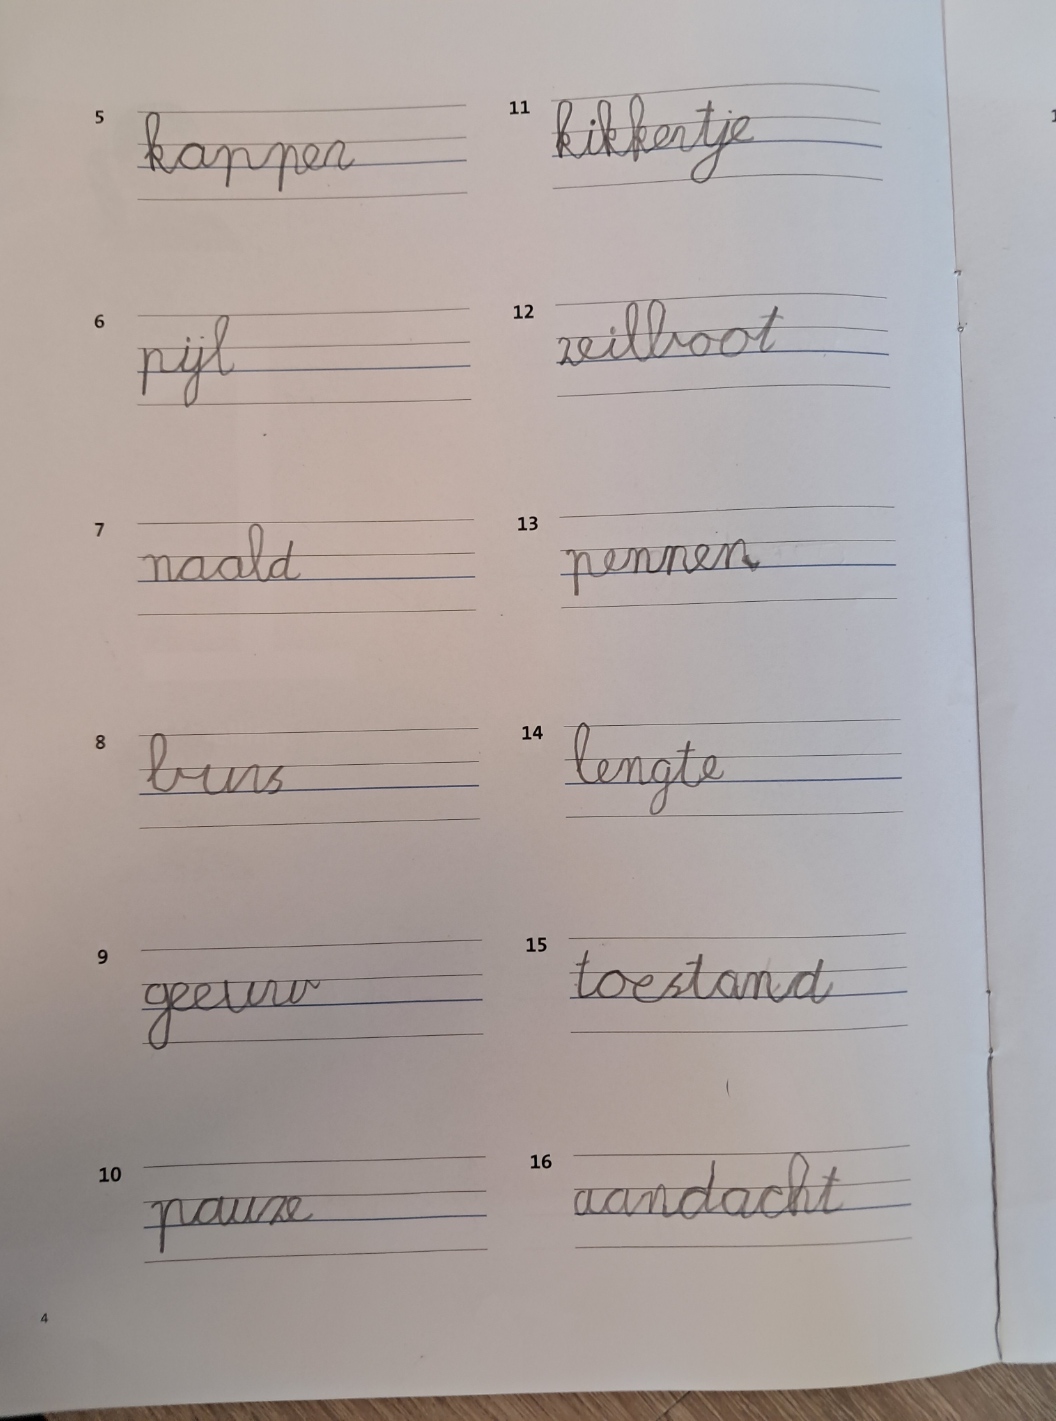 5 kappen
6 pijl
7 naald
8 buns
9 geeuw
10 pauze
11 kikkertje
12 zeilboot
13 pennen
14 lengte
15 toestand
16 aandacht
4